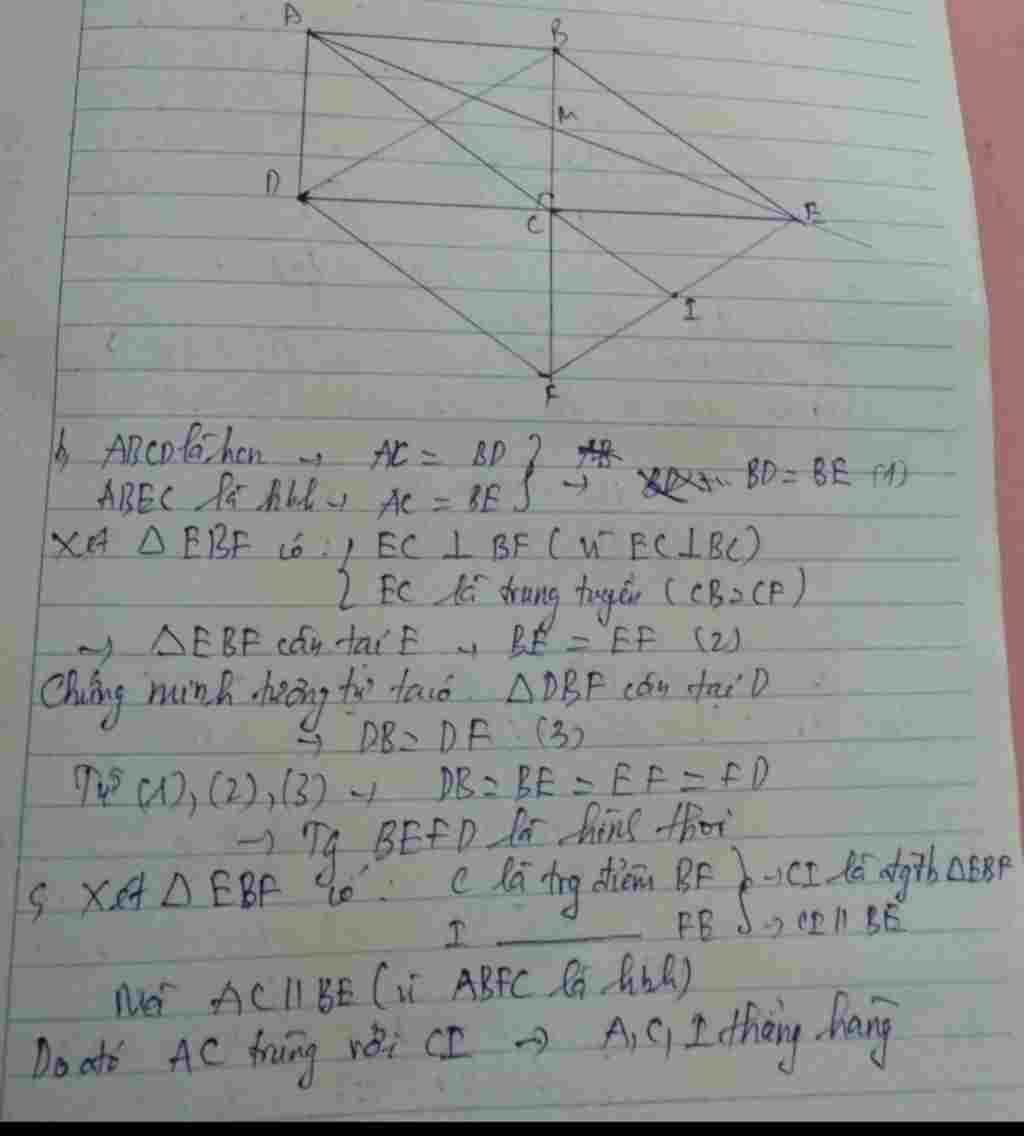 A
B
M
D
C
E
I
F
b, ABCD là hcn → AC = BD } → BD = BE (1)
ABEC là hbh → AC = BE
Xét △ EBF có : { EC ⊥ BF ( vì EC ⊥ BC)
{ EC là trung tuyến (CB = CF)
→ △EBF cân tại E → BE = EF (2)
Chứng minh tương tự ta có △DBF cân tại D
→ DB = DF (3)
Từ (1), (2), (3) → DB = BE = EF = FD
→ Tg BEFD là hình thoi
c, Xét △ EBF có : C là trg điểm BF } → CI là đgtb △EBF
I ———— FE } → CI // BE
Mà AC // BE (vì ABEC là hbh)
Do đó AC trùng với CI → A, C, I thẳng hàng